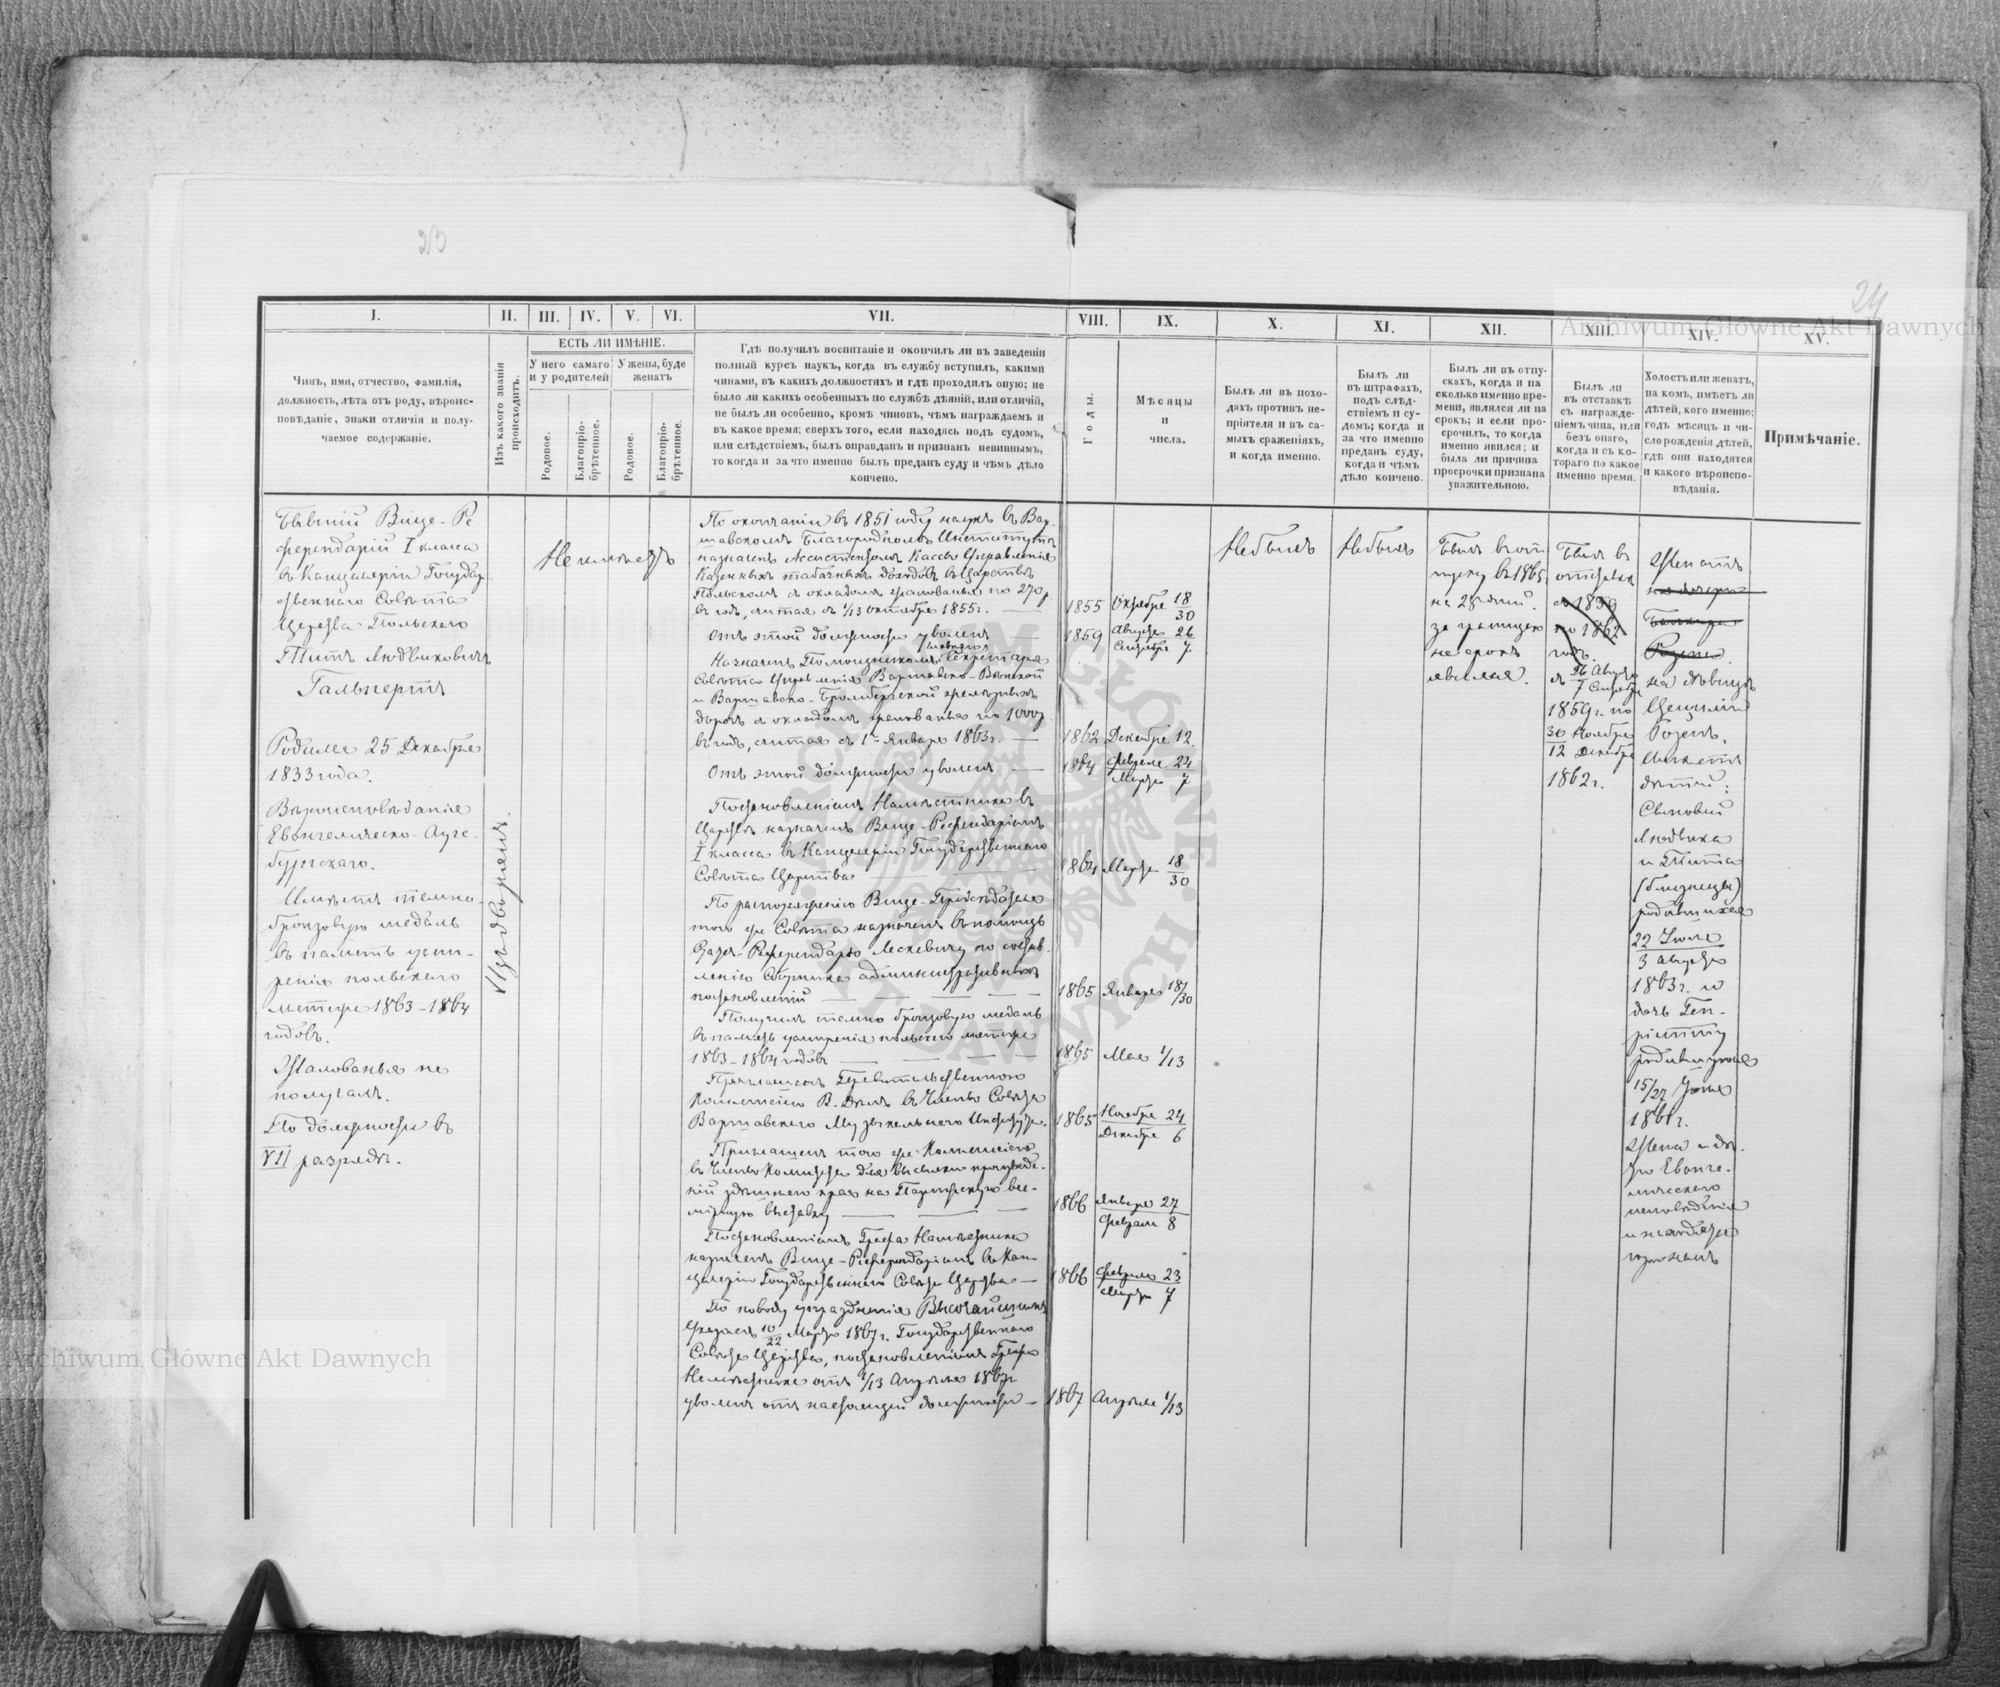 23
24
Archiwum Główne Akt Dawnych
I.
II.
III.
IV.
V.
VI.
VII.
VIII.
IX.
X.
XI.
XII.
XIII.
XIV.
XV.
Чинъ, имя, отчество, фамилія,
должность, лѣта отъ роду, вѣроис-
повѣданіе, знаки отличія и полу-
чаемое содержаніе.
Изъ какого званія
происходитъ.
ЕСТЬ ЛИ ИМѢНІЕ.
У него самаго
и у родителей
У жены, буде
женатъ
Родовое.
Благопріо-
брѣтенное.
Родовое.
Благопріо-
брѣтенное.
Гдѣ получилъ воспитаніе и окончилъ ли въ заведеніи
полный курсъ наукъ, когда въ службу вступилъ, какими
чинами, въ какихъ должностяхъ и гдѣ проходилъ оную; не
было ли какихъ особенныхъ по службѣ дѣяній, или отличій,
не былъ ли особенно, кромѣ чиновъ, чѣмъ награждаемъ и
въ какое время; сверхъ того, если находясь подъ судомъ,
или слѣдствіемъ, былъ оправданъ и признанъ невиннымъ,
то когда и за что именно былъ преданъ суду и чѣмъ дѣло
кончено.
Годы.
Мѣсяцы
и
числа.
Былъ ли въ похо-
дахъ противъ не-
пріятеля и въ са-
мыхъ сраженіяхъ,
и когда именно.
Былъ ли
въ штрафахъ,
подъ слѣд-
ствіемъ и су-
домъ; когда и
за что именно
преданъ суду,
когда и чѣмъ
дѣло кончено.
Былъ ли въ отпу-
скахъ, когда и на
сколько именно вре-
мени, являлся ли на
срокъ; и если про-
срочилъ, то когда
именно явился; и
была ли причина
просрочки признана
уважительною.
Былъ ли
въ отставкѣ
съ награжде-
ніемъ чина, или
безъ онаго,
когда и съ ко-
тораго по какое
именно время.
Холостъ или женатъ,
на комъ, имѣетъ ли
дѣтей, кого именно;
годъ мѣсяцъ и чи-
сло рожденія дѣтей,
гдѣ они находятся
и какого вѣроиспо-
вѣданія.
Примѣчаніе.
Бывшій Вице-Ре-
ферендарій I класса
въ Канцеляріи Государ-
ственнаго Совѣта
Царства Польскаго
Титъ Людвиковичъ
Гальпертъ
Родился 25 Декабря
1833 года.
Вѣроисповѣданія
Евангелическо-Аугс-
бургскаго.
Имѣетъ темно-
бронзовую медаль
въ память усми-
ренія польскаго
мятежа 1863-1864
годовъ.
Жалованья не
получалъ.
По должности въ
VII разрядѣ.
Изъ дворянъ.
Не имѣетъ
По окончаніи въ 1851 году наукъ въ Вар-
шавскомъ Благородномъ Институтѣ
назначенъ Ассистентомъ Кассы Управленія
Казенныхъ табачныхъ доходовъ въ Царствѣ
Польскомъ съ окладомъ жалованья по 270 р.
въ годъ, считая съ 1/13 октября 1855 г. —
Отъ этой должности уволенъ —
главнаго
Назначенъ Помощникомъ Секретаря
Совѣта Управленія Варшавско-Вѣнской
и Варшавско-Бромбергской желѣзныхъ
дорогъ съ окладомъ жалованья по 1000 р.
въ годъ, считая съ 1го Января 1863 г. —
Отъ этой должности уволенъ —
Постановленіемъ Намѣстника въ
Царствѣ назначенъ Вице-Референдаріемъ
I класса въ Канцеляріи Государственнаго
Совѣта Царства —
По распоряженію Вице-Предсѣдателя
того же Совѣта назначенъ въ помощь
Статсъ-Референдарю Лескевичу по состав-
ленію Сборника административныхъ
постановленій —
Получилъ темно бронзовую медаль
въ память усмиренія польскаго мятежа
1863-1864 годовъ —
Приглашенъ Правительственною
Коммисіею В. Дѣлъ въ Члены Совѣта
Варшавскаго Музыкальнаго Института.
Приглашенъ тою же Коммисіею
въ Члены Комитета для высылки произведе-
ній здѣшняго края на Парижскую все-
мірную выставку —
Постановленіемъ Графа Намѣстника
назначенъ Вице-Референдаріемъ въ Кан-
целяріи Государственнаго Совѣта Царства —
По поводу упраздненія Высочайшимъ
Указомъ 10/22 Марта 1867 г. Государственнаго
Совѣта Царства, постановленіемъ Графа
Намѣстника отъ 1/13 Апрѣля 1867 г.
уволенъ отъ настоящей должности —
1855 Октября 18/30
1859 Августа 26
Сентября 7
1862 Декабря 12.
1864 Февраля 24
Марта 7
1864 Марта 18/30
1865 Января 18/30
1865 Мая 1/13
1865 Ноября 24
Декабря 6
1866 Января 27
Февраля 8
1866 Февраля 23
Марта 7
1867 Апрѣля 1/13
Не былъ
Не былъ
Былъ въ от-
пуску въ 1865
на 28 дней.
за границею
на срокъ
явился.
Былъ въ
отставкѣ
съ 1859
по 1862
годъ.
съ 26 Августа
7 Сентября
1859 г. по
30 Ноября
12 Декабря
1862 г.
Женатъ
на дочери
Банкира
Розена.
на дѣвицѣ
Цециліи
Розенъ,
имѣетъ
дѣтей:
Сыновей
Людвика
и Тита
(близнецы)
родившихся
22 Іюля
3 Августа
1863 г. и
дочь Ген-
ріетту
родившуюся
15/27 Іюня
1861 г.
Жена и дѣ-
ти Еванге-
лическаго
исповѣданія
и находятся
при немъ
Archiwum Główne Akt Dawnych
ARCHIWUM GŁÓWNE AKT DAWNYCH